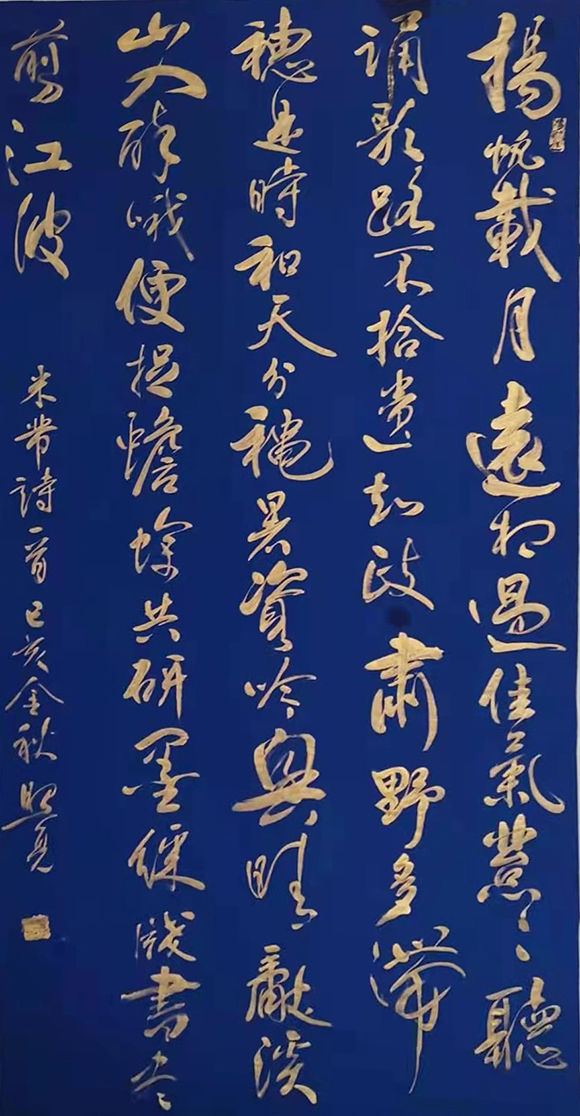 揚帆載月遠相過佳氣葱々聽
誦歌路不拾遺知政肅野多滯
穗是時和天分穐暑資吟興晴獻溪
山入醉哦便捉蟾蜍共研墨綵牋書盡
剪江波
米芾詩一首己亥金秋